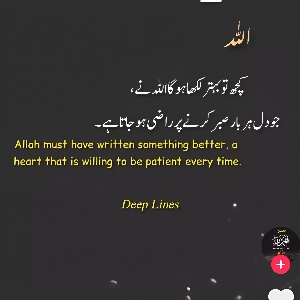 الله
کچھ تو بہتر لکھا ہو گا اللہ نے،
جو دل ہر بار صبر کرنے پر راضی ہو جاتا ہے۔
Allah must have written something better, a
heart that is willing to be patient every time.
Deep Lines